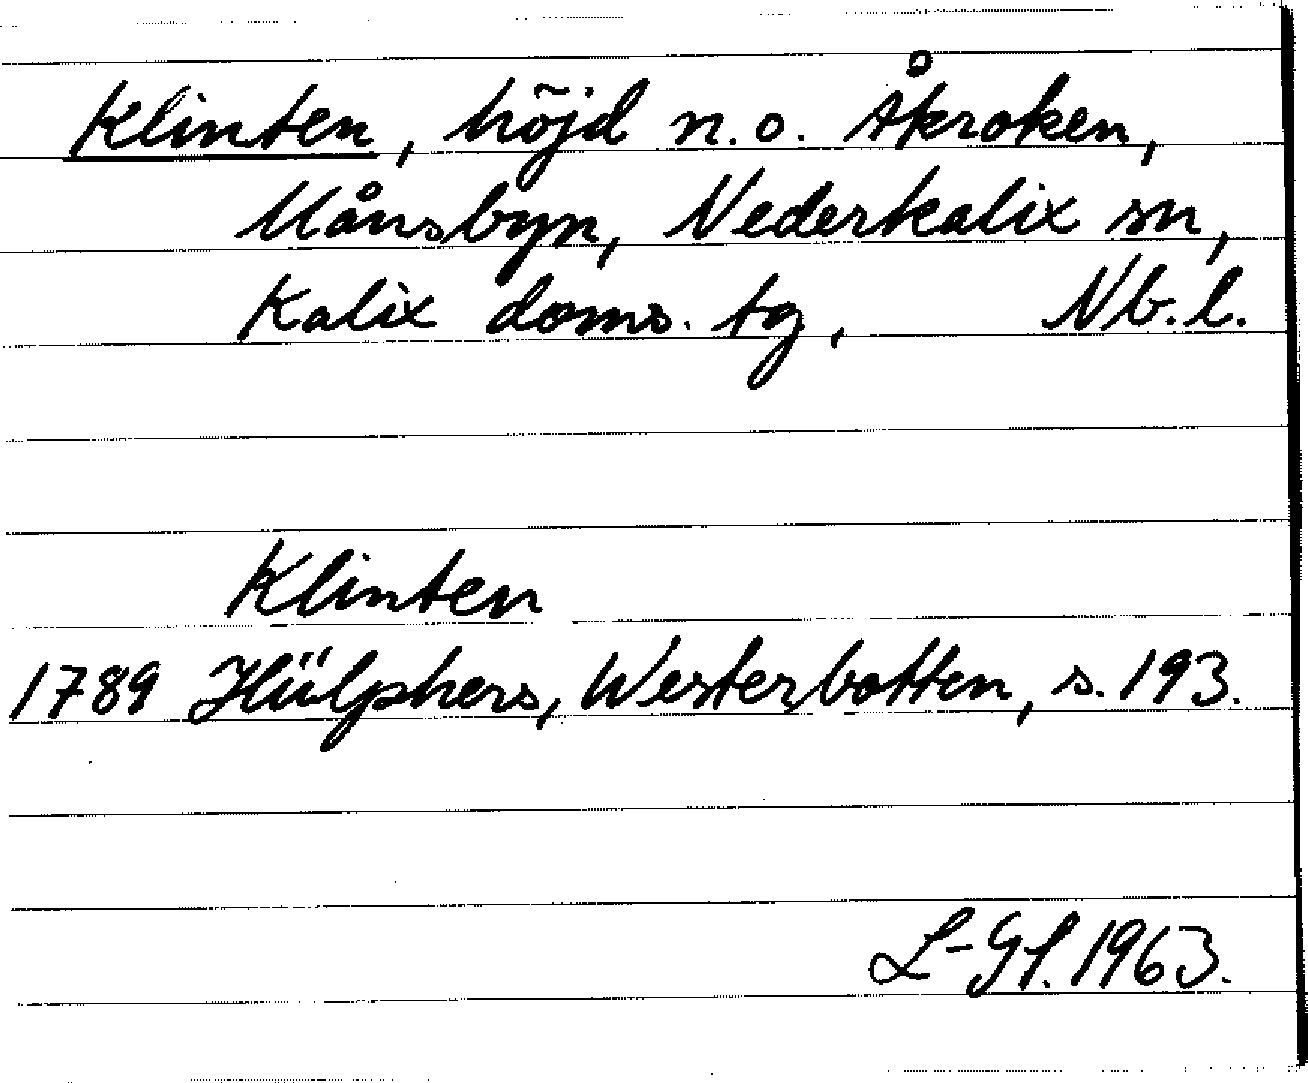 Klinten, höjd n.o. Åkroken,
Månsbyn, Nederkalix sn,
Kalix doms. tg, Nb.l.
Klinten
1789 Hülphers, Westerbotten, s. 193.
L-Gf. 1963.